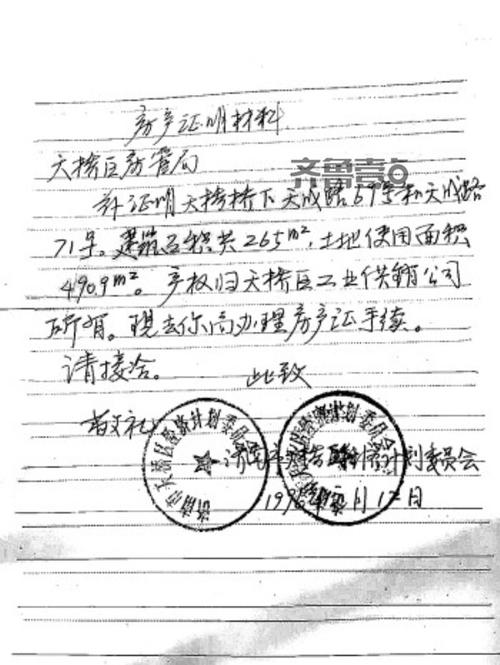 房产证明材料
齐鲁壹点
天桥区房管局
兹证明天桥桥下天成路69号和天成路
71号。建筑面积共265m²,土地使用面积
490.9m²。产权归天桥区工业供销公司
所有。现去你局办理房产证手续。
请接洽。
此致
敬礼
济南市天桥区经济计划委员会
济南市天桥区经济计划委员会
月12日